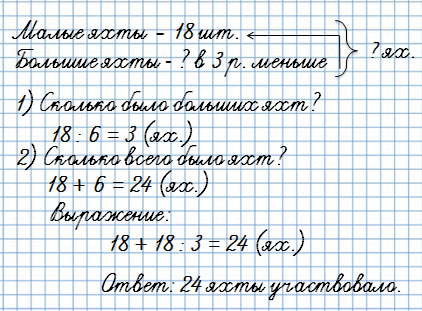 Малые яхты - 18 шт.
Большие яхты - ? в 3 р. меньше
? ях.
1) Сколько было больших яхт?
18 : 6 = 3 (ях.)
2) Сколько всего было яхт?
18 + 6 = 24 (ях.)
Выражение:
18 + 18 : 3 = 24 (ях.)
Ответ: 24 яхты участвовало.